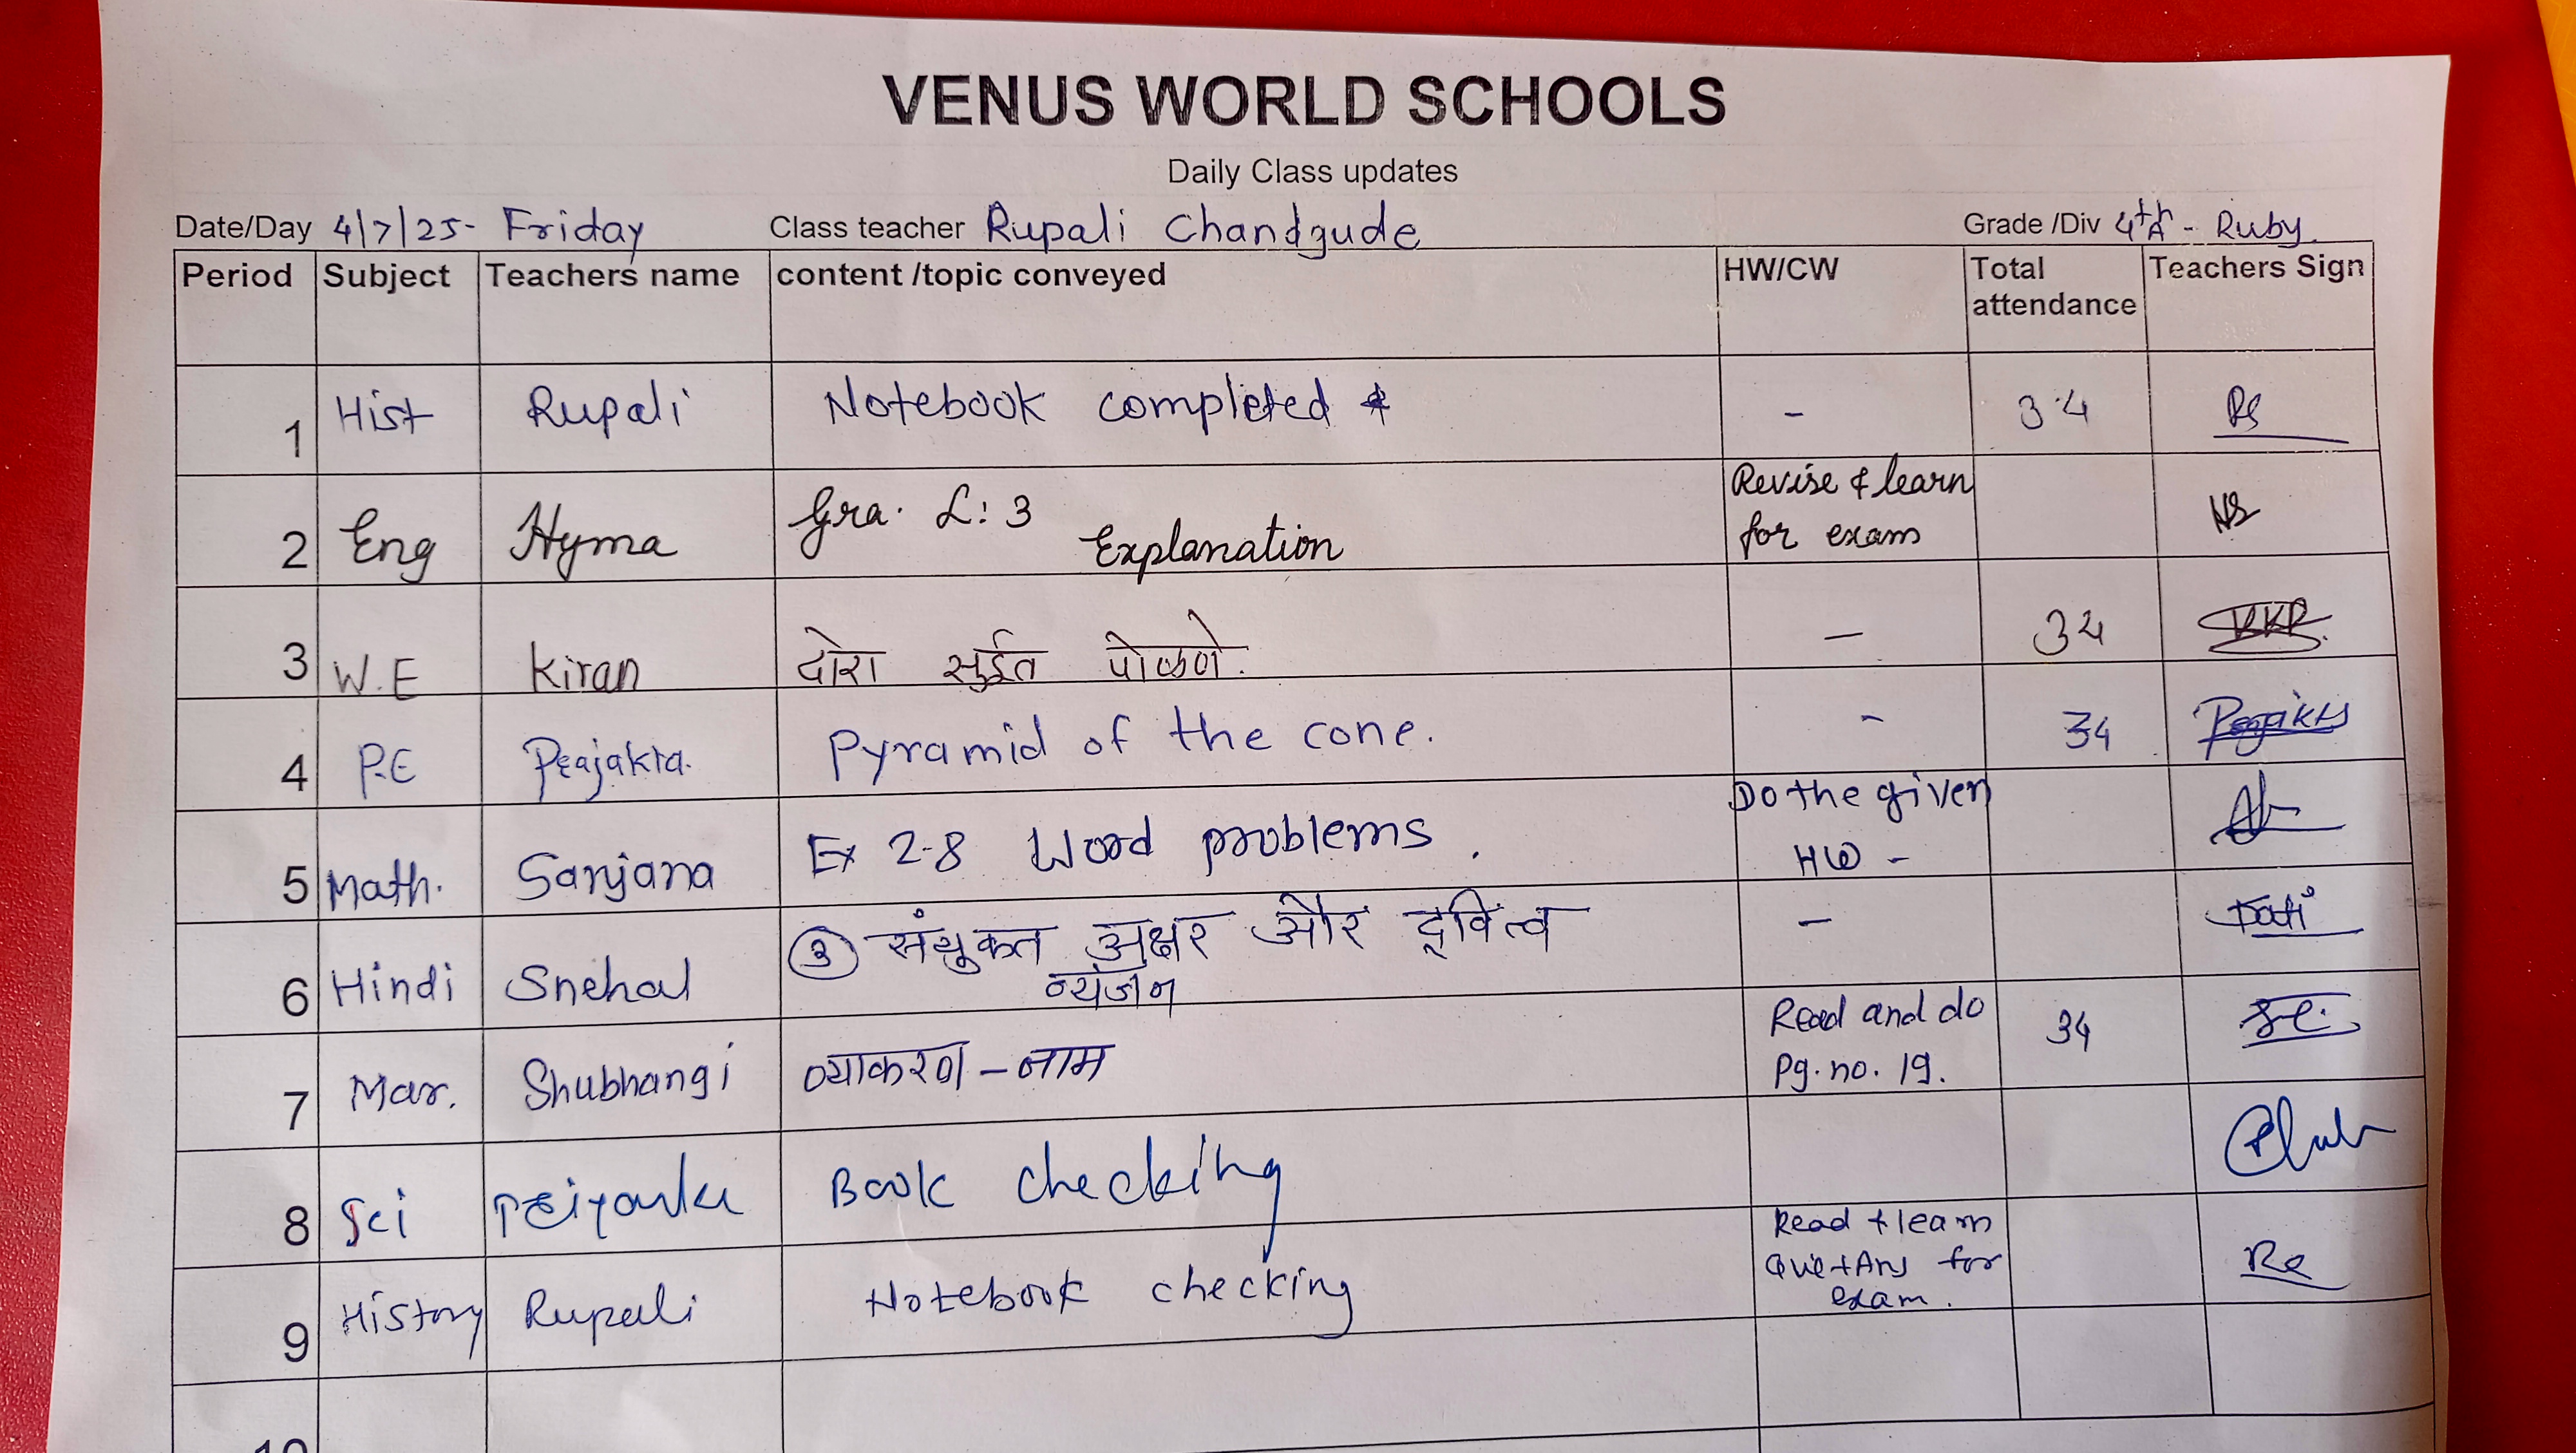 VENUS WORLD SCHOOLS
Daily Class updates
Date/Day 4/7/25- Friday Class teacher Rupali Chandgude Grade /Div 4th A - Ruby.
Period Subject Teachers name content /topic conveyed HW/CW Total attendance Teachers Sign
1 Hist Rupali Notebook completed - 34
2 Eng Hyma Gra. L: 3 Explanation Revise & learn for exam
3 W.E Kiran दोरा सुईत पोळणे. - 34
4 P.E Prajakta. Pyramid of the cone. - 34
5 Math. Sanjana Ex 2.8 Word problems. Do the given HW -
6 Hindi Snehal ③ संयुक्त अक्षर और द्वित्व व्यंजन -
7 Mar. Shubhangi व्याकरण - नाम Read and do Pg. no. 19. 34
8 Sci Priyanka Book checking
9 History Rupali Notebook checking Read + learn Que+Ans for exam.
10